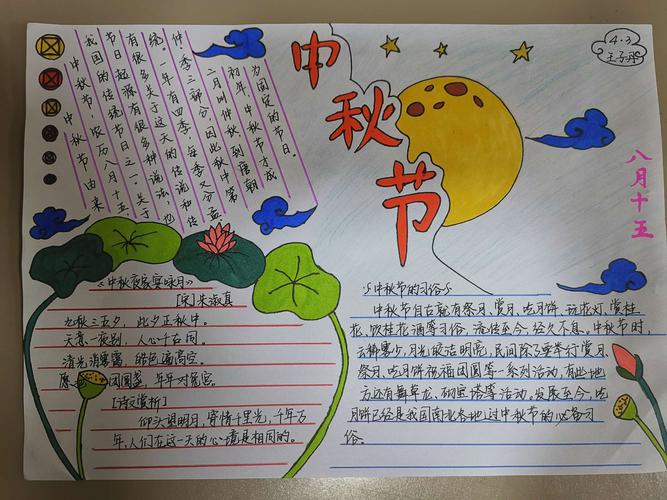 4.3
王子丹
中秋节
八月十五
中秋节由来
中秋节，农历八月十五，
我国的传统节日之一。关于
节日起源有很多种说法，也
有很多关于这天的传说和传
统。一年有四季，每季又分孟
仲季三部分，因此秋中第
二月叫仲秋，到唐朝
初年，中秋节才成
为固定的节日。
《中秋夜家宴咏月》
[宋]朱淑真
九秋三五夕，此夕正秋中。
天意一夜别，人心千古同。
清光消雾霭，皓色遍高空。
愿 团圆盏，年年对兔宫。
[诗文赏析]
仰头望明月，寄情千里光，千年万
年，人们在这一天的心境是相同的。
中秋节的习俗
中秋节自古就有祭月、赏月、吃月饼、玩花灯、赏桂
花、饮桂花酒等习俗，流传至今，经久不息。中秋节时，
云稀雾少，月光皎洁明亮，民间除了要举行赏月、
祭月、吃月饼祝福团圆等一系列活动，有些地
方还有舞草龙、砌宝塔等活动。发展至今，吃
月饼已经是我国南北各地过中秋节的必备习
俗。